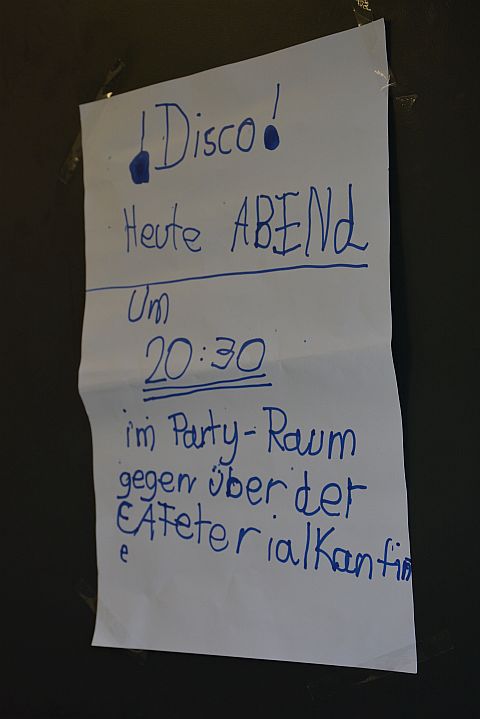 !Disco!
Heute ABENd
Um
20:30
im Party-Raum
gegen über der
CAFeteria/Kantin
e